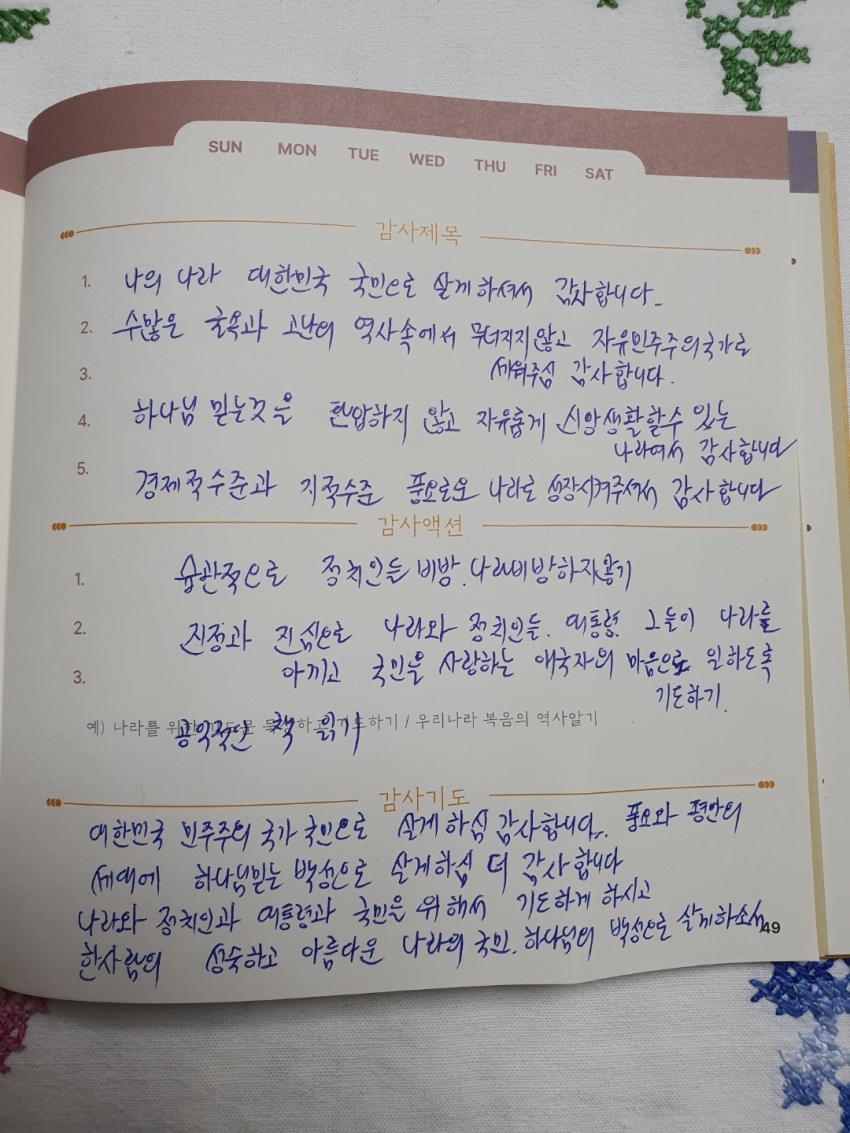 SUN MON TUE WED THU FRI SAT
감사제목
1. 나의 나라 대한민국 국민으로 살게하셔서 감사합니다.
2. 수많은 굴욕과 고난의 역사속에서 무너지지않고 자유민주주의국가로
3. 세워주심 감사합니다.
4. 하나님 믿는것을 핍압하지 않고 자유롭게 신앙생활할수 있는
나라여서 감사합니다
5. 경제적수준과 지적수준 풍요로운 나라로 성장시켜주셔서 감사합니다
감사액션
1. 습관적으로 정치인들 비방. 나라비방하지않기
2. 진정과 진심으로 나라와 정치인들. 대통령. 그들이 나라를
3. 아끼고 국민을 사랑하는 애국자의 마음으로 일하도록
기도하기.
예) 나라를 위한 기도하기 / 우리나라 복음의 역사알기
공익적인 책 읽기
감사기도
대한민국 민주주의 국가 국민으로 살게하심 감사합니다.. 풍요와 평안의
세대에 하나님믿는 백성으로 살게하심 더 감사합니다
나라와 정치인과 대통령과 국민을 위해서 기도하게 하시고
한사람의 성숙하고 아름다운 나라의 국민. 하나님의 백성으로 살게하소서
49